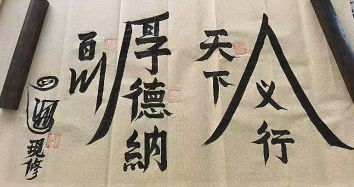 人义行
天下
厚德納
百川
現修